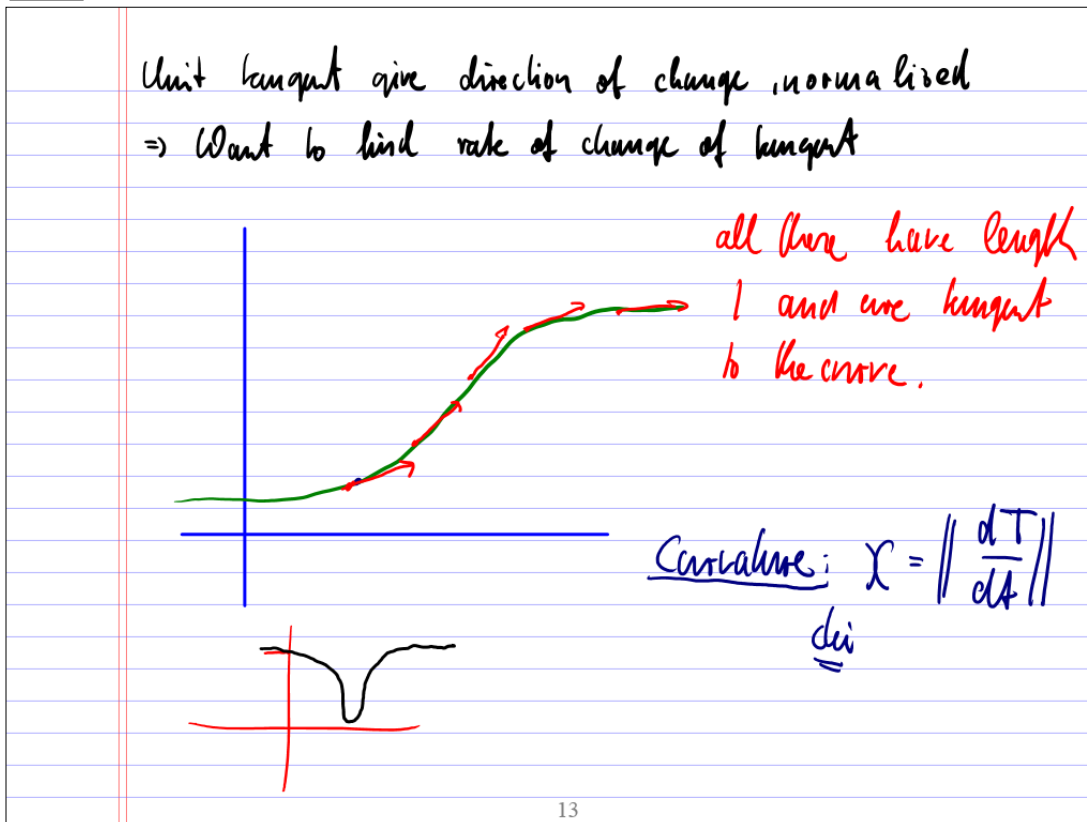 Unit tangent give direction of change, normalized
=> Want to find rate of change of tangent
all these have length
1 and are tangent
to the curve.
Curvature: χ = || dT/dt ||
chi
13